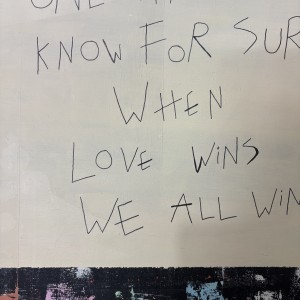 ONE
KNOW FOR SUR
WHEN
LOVE WINS
WE ALL WIN